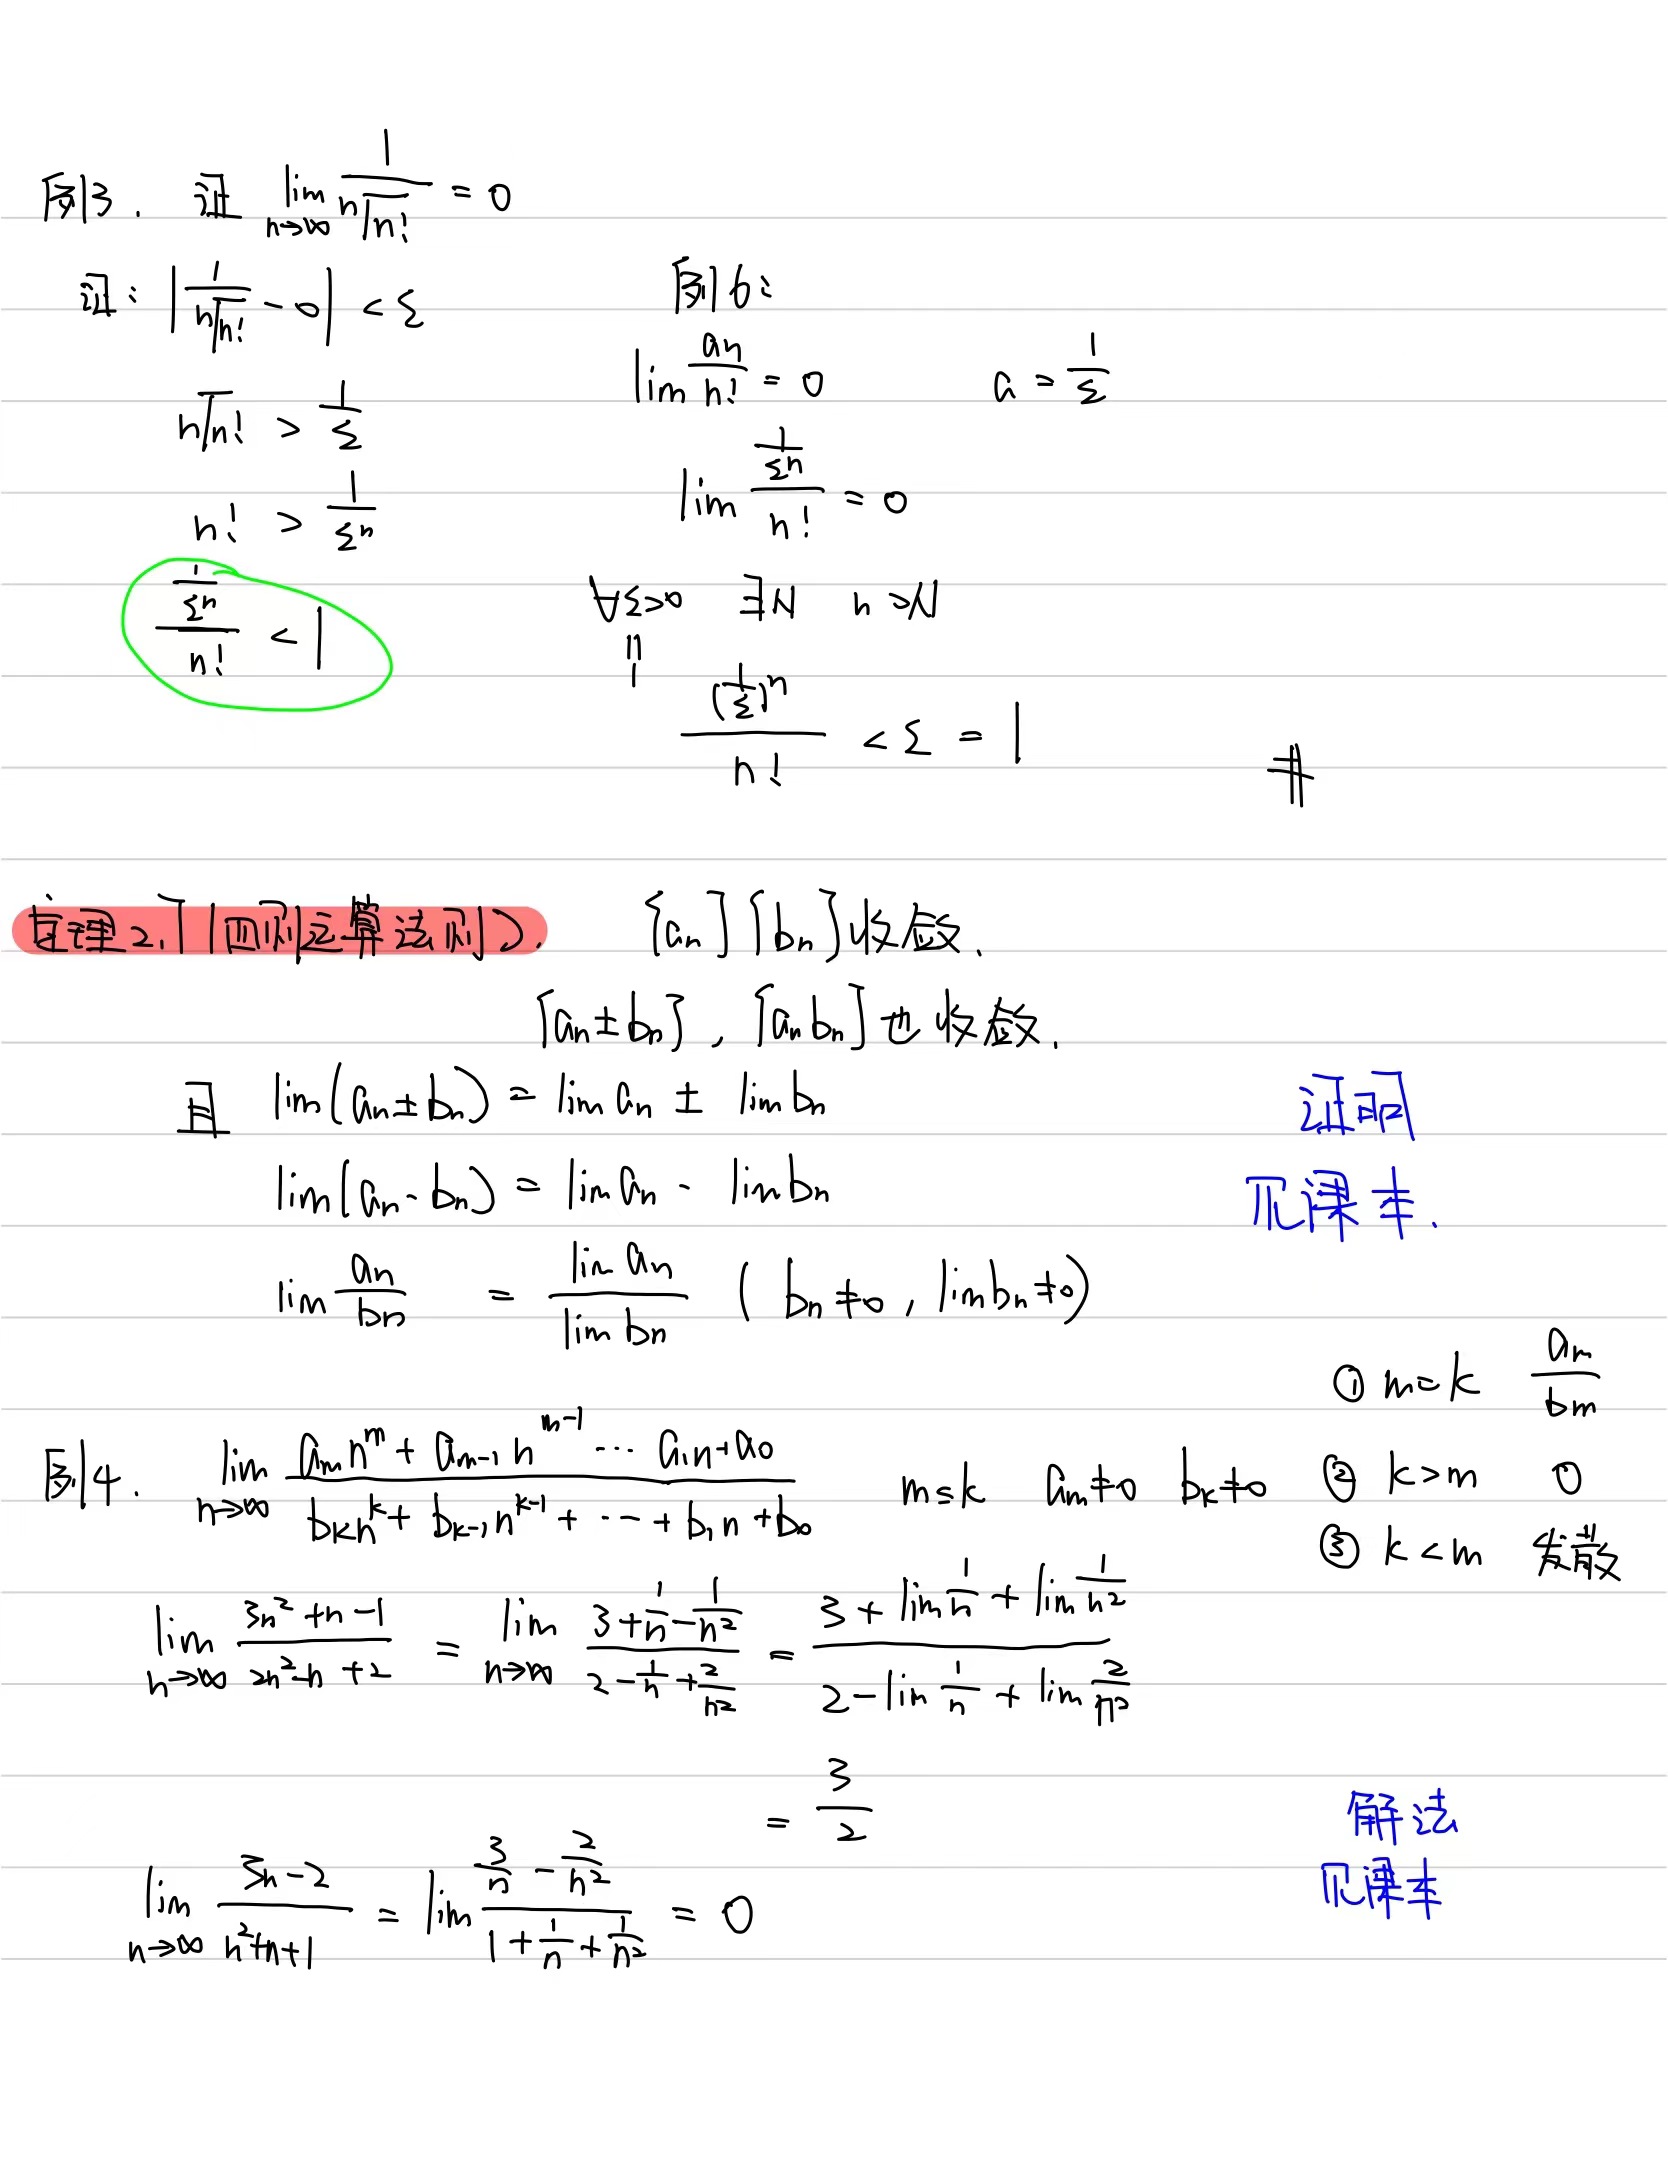 例3. 证 lim_{n→∞} 1/ⁿ√n! = 0
证: |1/ⁿ√n! - 0| < ε
ⁿ√n! > 1/ε
n! > 1/εⁿ
(1/εⁿ)/n! < 1
例6:
lim aⁿ/n! = 0 a = 1/ε
lim (1/εⁿ)/n! = 0
∀ε>0 ∃N n>N
=
1
(1/ε)ⁿ/n! < ε = 1 #
定理2.7(四则运算法则). {aₙ} {bₙ}收敛.
{aₙ±bₙ}, {aₙbₙ}也收敛.
且 lim(aₙ±bₙ) = lim aₙ ± lim bₙ
lim(aₙ-bₙ) = lim aₙ - lim bₙ
lim aₙ/bₙ = lim aₙ/lim bₙ (bₙ≠0, lim bₙ≠0)
证明
见课本.
例4. lim_{n→∞} (aₘnᵐ + aₘ₋₁nᵐ⁻¹ ··· a₁n+a₀)/(bₖnᵏ + bₖ₋₁nᵏ⁻¹ + ··· + b₁n + b₀) m≤k aₘ≠0 bₖ≠0
① m=k aₘ/bₘ
② k>m 0
③ k<m 发散
lim_{n→∞} (3n²+n-1)/(2n²-n+2) = lim_{n→∞} (3+1/n-1/n²)/(2-1/n+2/n²) = (3+lim 1/n+lim 1/n²)/(2-lim 1/n+lim 2/n²)
= 3/2
lim_{n→∞} (3n-2)/(n²+n+1) = lim (3/n-2/n²)/(1+1/n+1/n²) = 0
解法
见课本